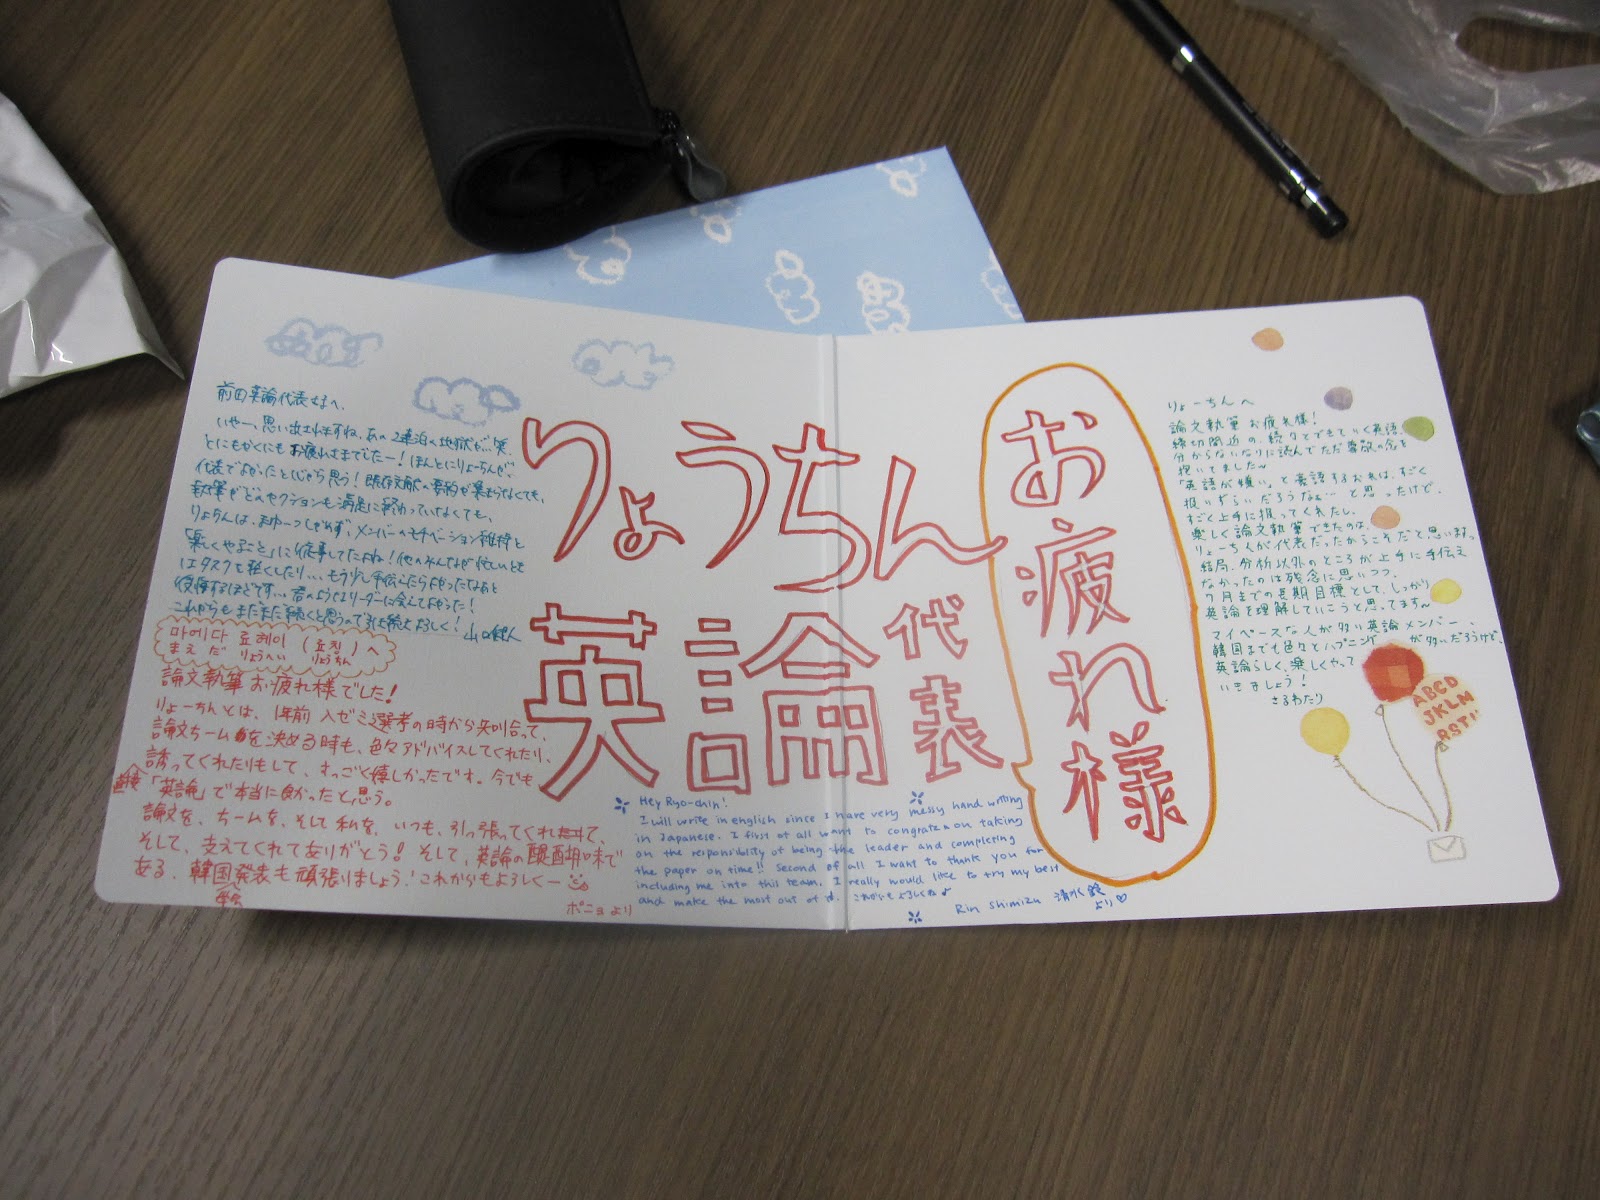 前田英論代表さまへ、
いやー、思い出されますね、あの2連泊の地獄が…笑
とにもかくにもお疲れさまでしたー！ほんとにりょーちんが、
代表でよかったとしみじみ思う！既存文献の要約が集まらなくても、
執筆がどのセクションも満足に終わっていなくても、
「楽しくやること」に従事してたよね！他のみんなが忙しいとも
タスクを軽くしたり…、もう少し手伝えたらよかったなあと
後悔するほどです…君のようなリーダーに会えてよかった！
これからもまだまだ続くと思うので引き続きよろしく！
마에다 료헤이 (료칭) へ
まえだ りょうへい りょうちん
論文執筆お疲れ様でした！
りょーちんとは、1年前 入ゼミ選考の時から知り合って、
論文ちーむを決める時も、色々アドバイスしてくれたり、
誘ってくれたりもして、すっごく嬉しかったです。今でも
「英論」で本当に良かったと思う。
論文を、ちーむを、そして私を、いつも、引っ張ってくれて、
そして、支えてくれてありがとう！そして、英論の醍醐味で
ある、韓国発表も頑張りましょう！これからもよろしくー
学会
ポニョより
りょうちん
英論代表
お疲れ様
Hey Ryo-chin!
I will write in english since I have very messy hand writing
in Japanese. I first of all want to congrats on taking
on the responsiblity of being the leader and completing
the paper on time!! Second of all I want to thank you for
including me into this team. I really would like to try my best
and make the most out of it. これからもよろしくね♪
Rin Shimizu 清水
より♡
りょーちんへ
論文執筆お疲れ様！
締切間近の、続々とできていく英語、
分からないなりに読んでただ尊敬の念を
抱いてました〜
「英語が嫌い」と豪語するおれは、すごく
扱いずらいだろうなぁ…と思ったけど、
すごく上手に扱ってくれたし、
楽しく論文執筆できたのは、
りょーちんが代表だったからこそだと思います。
結局、分析以外のところが上手に手伝え
なかったのは残念に思いつつ、
7月までの長期目標として、しっかり
英論を理解していこうと思ってます〜
マイペースな人が多い英論メンバー、
韓国までも色々とハプニングが多いだろうけど、
英論らしく、楽しくやって
いきましょう！
さるわたり
ABCD
JKLM
RST